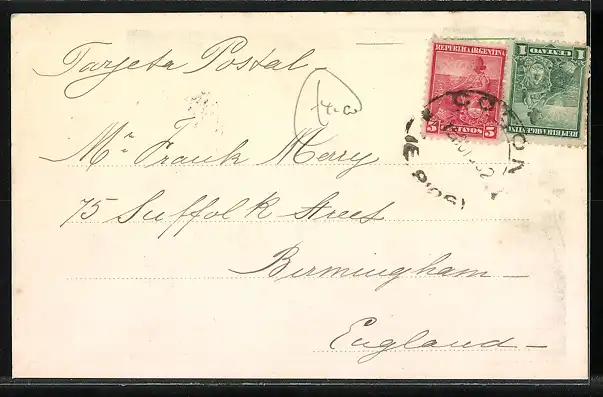 Tarjeta Postal
REPUBLICA ARGENTINA
5 CENTAVOS 5
1 CENTAVO 1
REPUBLICA ARGENTINA
Mr Frank Merry
75 Suffolk Street
Birmingham
England